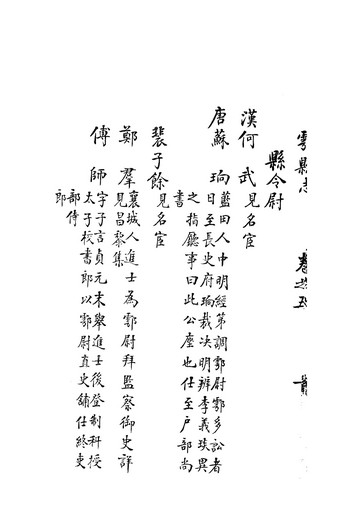 縣令尉
漢何　武見名宦
唐蘇　珦藍田人中明經第調鄠尉鄠多訟者
日至長史府珦裁决明辦李義琰異
之指廳事曰此公座也仕至户部尚
書
裴子餘見名宦
鄭　羣襄城人進士為鄠尉拜監察御史詳
見昌黎集
傅　師字子言貞元末舉進士後登制科授
太子校書郎以鄠尉直史舘仕終吏
部侍
郎